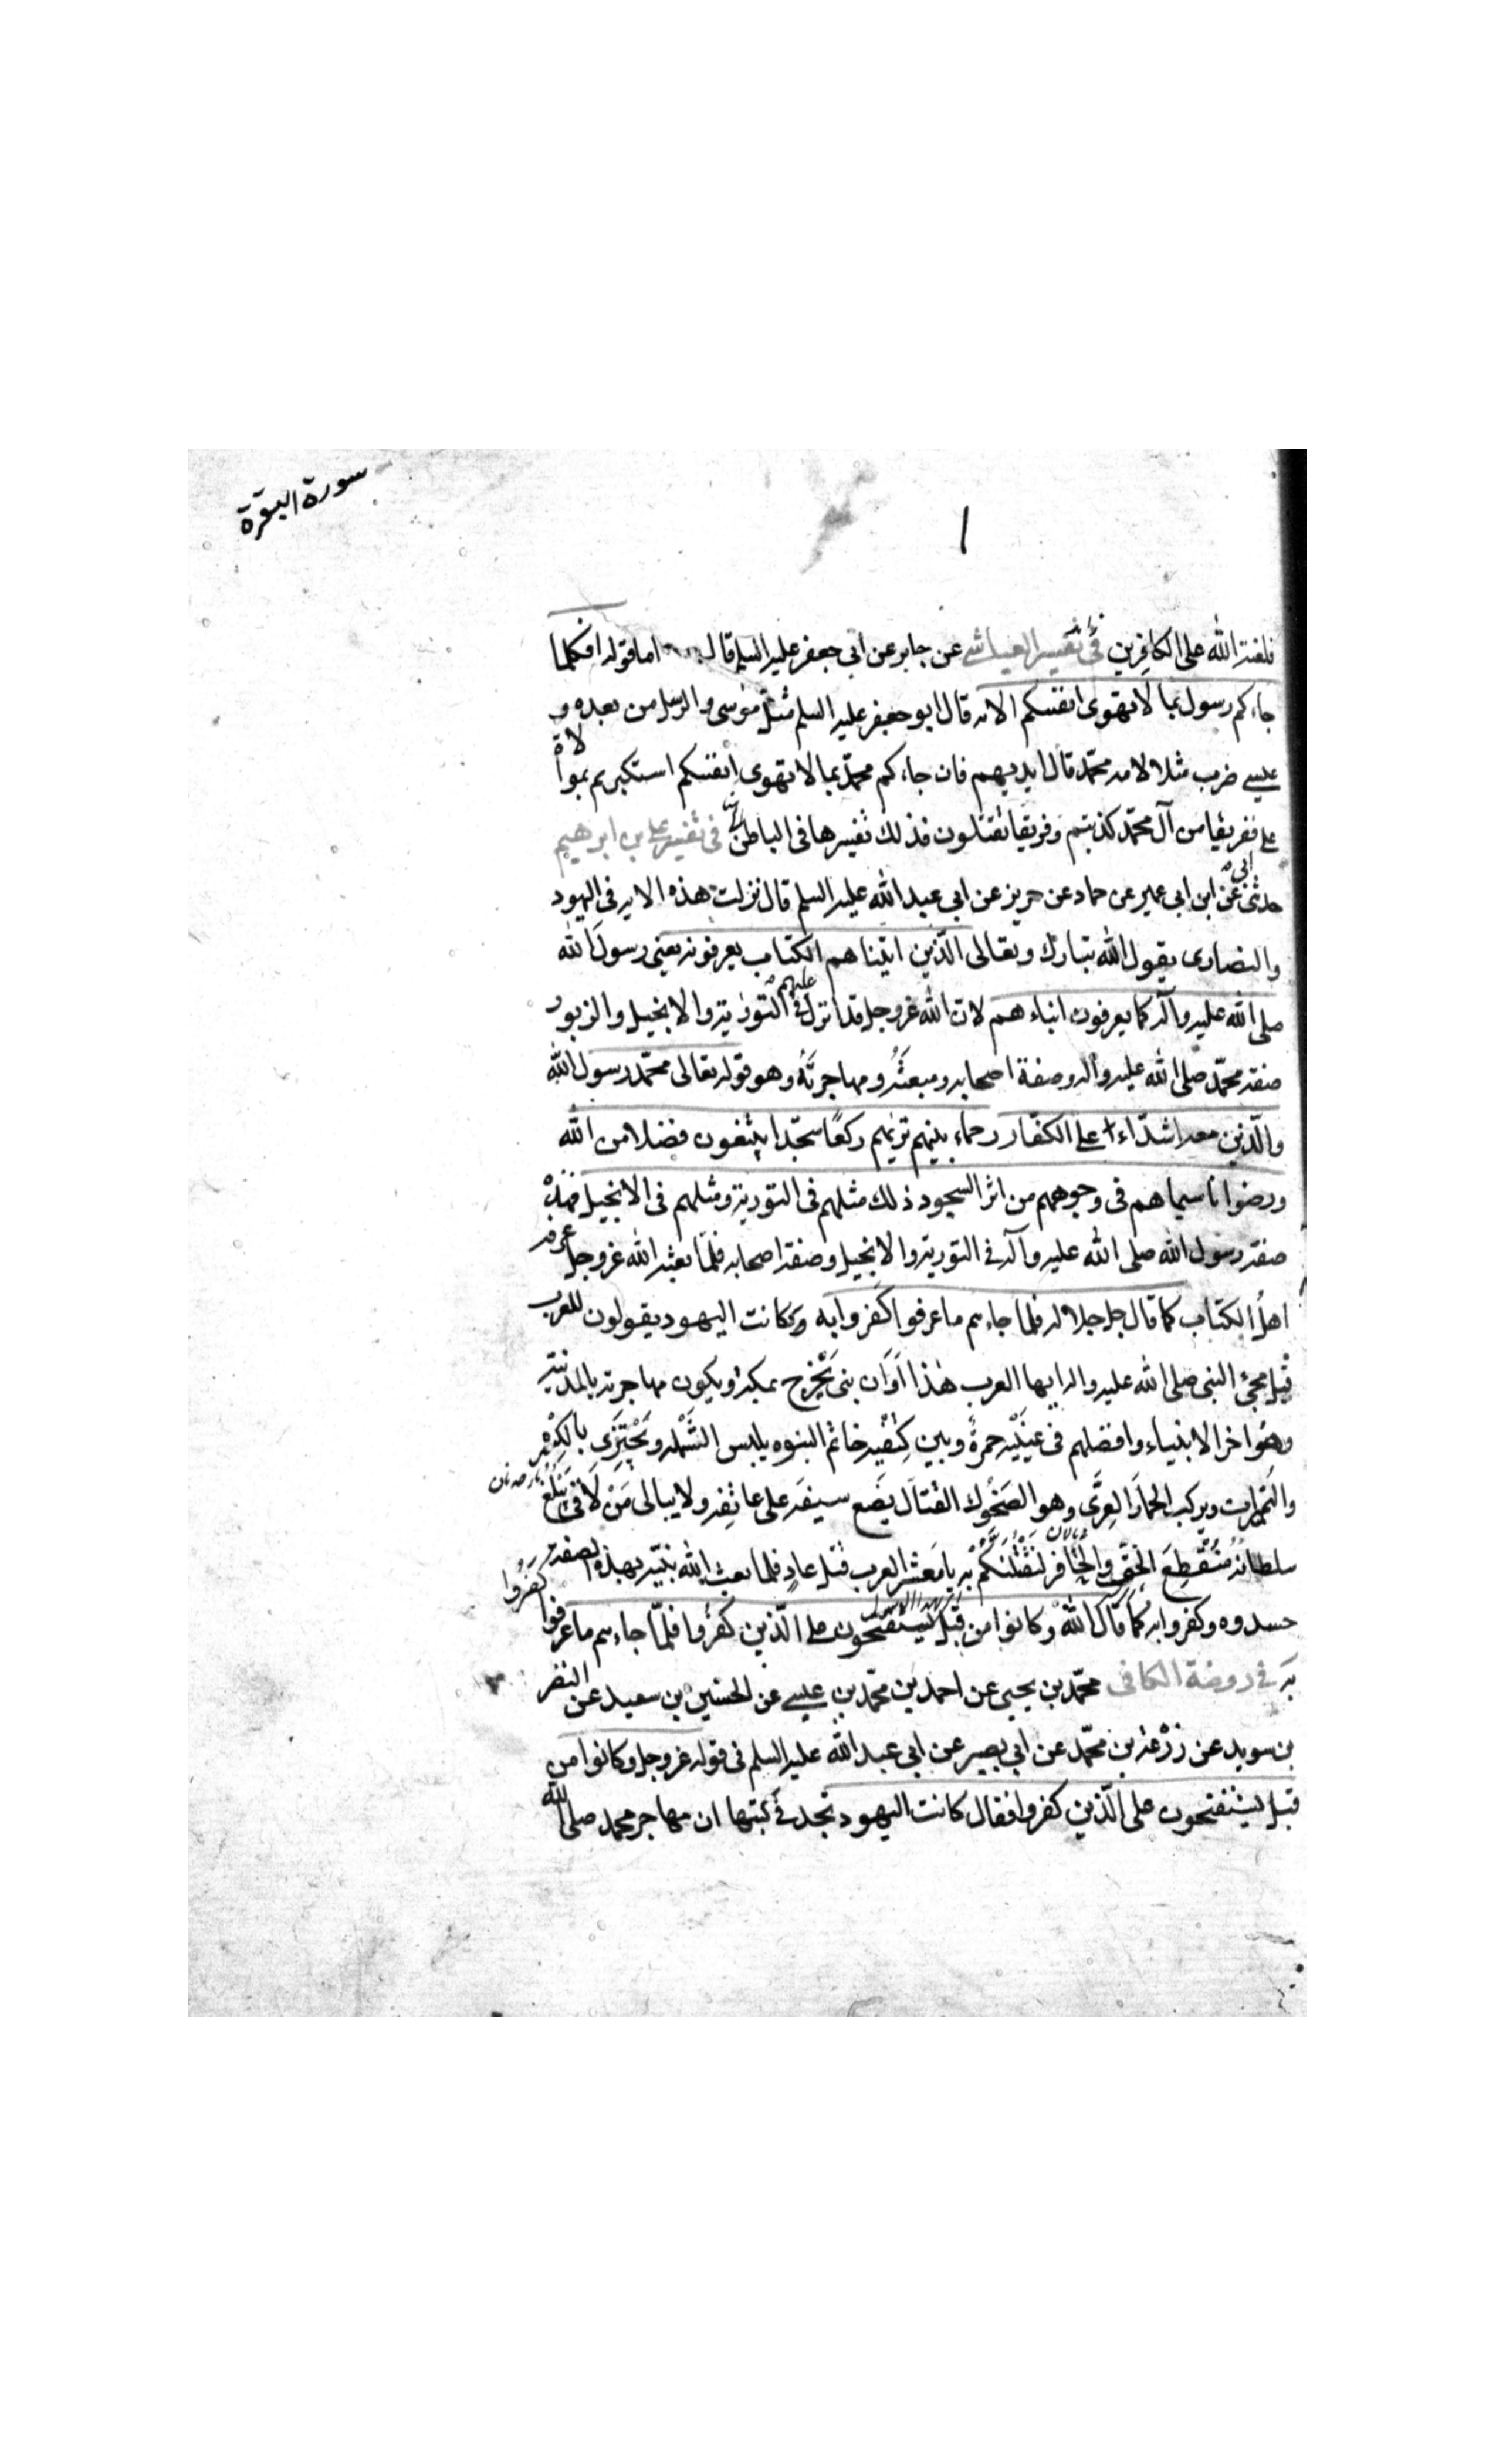 سورة البقرة
١
فلعنة الله على الكافرين في تفسير العياشي عن جابر عن ابي جعفر عليه السلم قال اما قوله افكلما
جاءكم رسول بما لا تهوى انفسكم الايه قال ابو جعفر عليه السلم مثل موسى والرسل من بعده و
عيسى ضرب مثلا لامه محمّد قال الله لهم فان جاءكم محمّد بما لا تهوى انفسكم استكبرتم بموالاة
على ففريقا من آل محمّد كذبتم وفريقا تقتلون فذلك تفسيرها في الباطن في تفسير علي بن ابرهيم
حدثنى ابي عن ابن ابي عمير عن حماد عن حريز عن ابي عبد الله عليه السلم قال نزلت هذه الايه في اليهود
والنصارى يقول الله تبارك وتعالى الّذين اتيناهم الكتاب يعرفونه يعنى رسول الله
صلى الله عليه وآله كما يعرفون ابناءهم لان الله عزوجل قد انزل عليهم في التورية والانجيل والزبور
صفة محمّد صلى الله عليه واله وصفة اصحابه ومبعثه ومهاجرته وهو قوله تعالى محمّد رسول الله
والّذين معه اشدّاء على الكفّار رحماء بينهم تريهم ركعًا سجّدا يبتغون فضلا من الله
ورضوانا سيماهم في وجوههم من اثر السجود ذلك مثلهم في التورية ومثلهم في الانجيل فهذه
صفة رسول الله صلى الله عليه وآله في التورية والانجيل وصفة اصحابه فلمّا بعثه الله عزوجل عرفه
اهل الكتاب كما قال جل جلاله فلما جاءهم ما عرفوا كفروا به وكانت اليهود يقولون للعرب
قبل مجئ النبي صلى الله عليه واله ايها العرب هذا اوان نبى يخرج بمكة ويكون مهاجرته بالمدينة
وهو اخر الانبياء وافضلهم في عينيه حمرة وبين كتفيه خاتم النبوه يلبس الشملة ويجتزى بالكسرة
والتمرات ويركب الحمار العرى وهو الضحوك القتال يضع سيفه على عاتقه ولا يبالى من لاقى يبلغ
سلطانه منقطع الخف والحافر لنقتلنكم به يا معشر العرب قتل عاد فلما بعث الله نبيّه بهذه الصفة
حسدوه وكفروا به كما قال الله وكانوا من قبل يستفتحون على الّذين كفروا فلمّا جاءهم ما عرفوا كفروا
به في روضة الكافي محمّد بن يحيى عن احمد بن محمّد بن عيسى عن الحسين بن سعيد عن النضر
بن سويد عن زرعة بن محمّد عن ابي بصير عن ابي عبد الله عليه السلم في قوله عزوجل وكانوا من
قبل يستفتحون على الّذين كفروا فقال كانت اليهود تجد في كتبها ان مهاجر محمد صلى الله